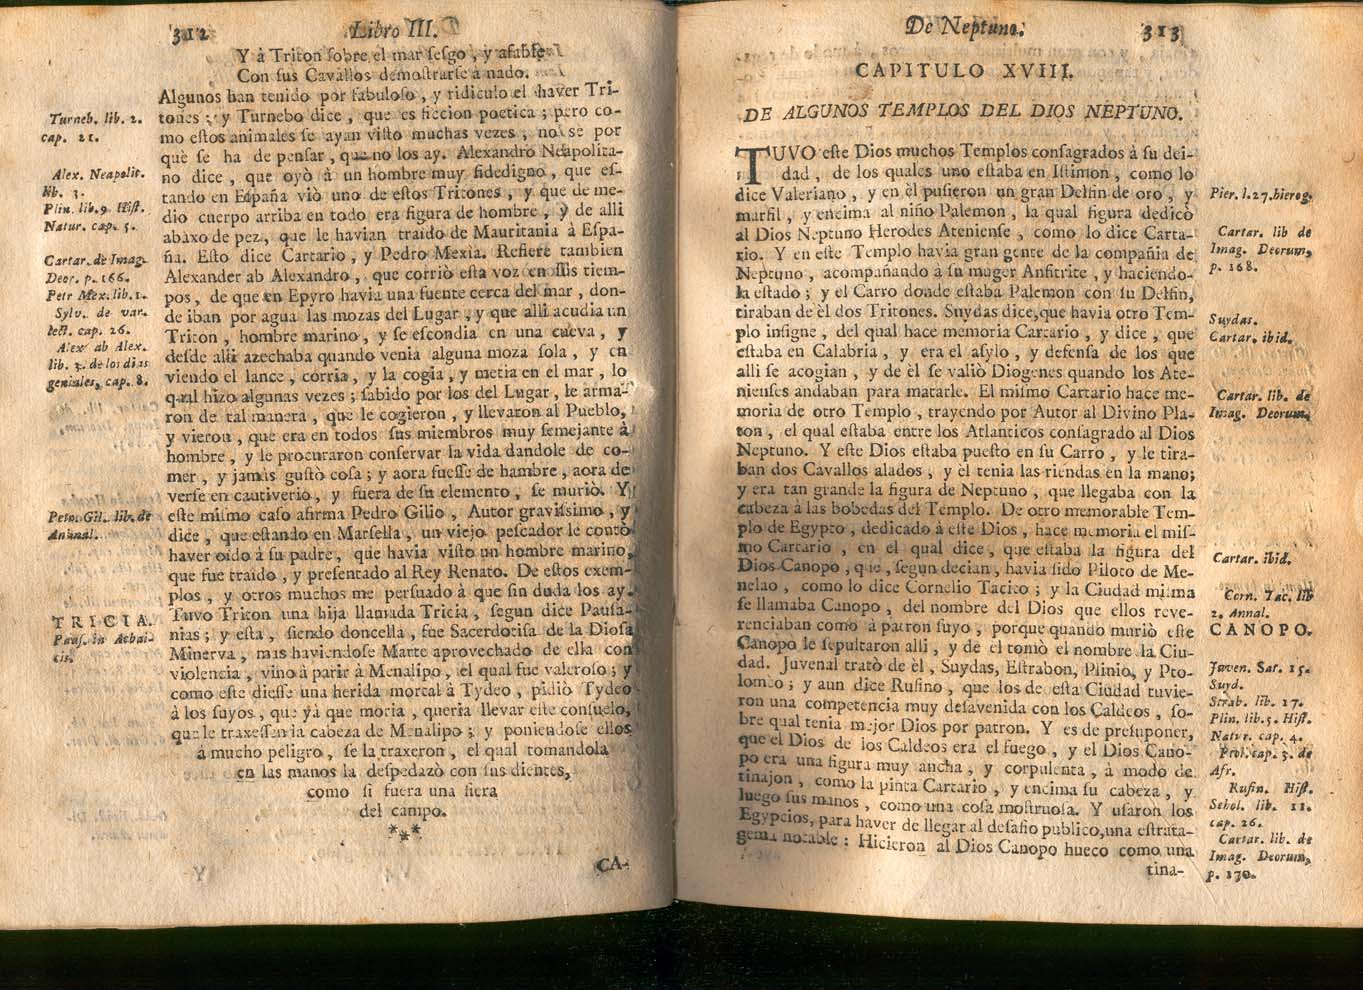 312 Libro III.
Y à Triton sobre el mar sesgo, y afable
Con sus Cavallos demostrarse à nado.
Algunos han tenido por fabuloso, y ridiculo el haver Tri-
tones; y Turnebo dice, que es ficcion poetica; pero co-
mo estos animales se ayan visto muchas veces, no se por
què se ha de pensar, que no los ay. Alexandro Neapolita-
no dice, que oyò à un hombre muy fidedigno, que es-
tando en España viò uno de estos Tritones, y que de me-
dio cuerpo arriba en todo era figura de hombre, y de alli
abaxo de pez, que le havian traido de Mauritania à Espa-
ña. Esto dice Cartario, y Pedro Mexia. Refiere tambien
Alexander ab Alexandro, que corriò esta voz en sus tiem-
pos, de que en Epyro havia una fuente cerca del mar, don-
de iban por agua las mozas del Lugar, y que alli acudia un
Triton, hombre marino, y se escondia en una cueva, y
desde alli azechaba quando venia alguna moza sola, y en
viendo el lance, corria, y la cogia, y metia en el mar, lo
qual hizo algunas veces; sabido por los del Lugar, le arma-
ron de tal manera, que le cogieron, y llevaron al Pueblo,
y vieron, que era en todos sus miembros muy semejante à
hombre, y le procuraron conservar la vida dandole de co-
mer, y jamàs gustò cosa; y aora fuesse de hambre, aora de
verse en cautiverio, y fuera de su elemento, se muriò. Y
este mismo caso afirma Pedro Gilio, Autor gravissimo, y
dice, que estando en Marsella, un viejo pescador le contò
haver oido à su padre, que havia visto un hombre marino,
que fue traido, y presentado al Rey Renato. De estos exem-
plos, y otros muchos me persuado à que sin duda los ay.
Tuvo Triton una hija llamada Tricia, segun dice Pausa-
nias; y esta, siendo doncella, fue Sacerdotisa de la Diosa
Minerva, mas haviendose Marte aprovechado de ella con
violencia, vino à parir à Menalipo, el qual fue valeroso; y
como este diesse una herida mortal à Tydeo, pidiò Tydeo
à los suyos, que yà que moria, queria llevar este consuelo,
que le traxessen la cabeza de Menalipo; y poniendose ellos
à mucho peligro, se la traxeron, el qual tomandola
en las manos la despedazò con sus dientes,
como si fuera una fiera
del campo.
***
CA-
Turneb. lib. 2.
cap. 21.
Alex. Neapolit.
lib. 3.
Plin. lib. 9. Hist.
Natur. cap. 5.
Cartar. de Imag.
Deor. p. 166.
Petr Mex. lib. 1.
Sylv. de var.
lect. cap. 26.
Alex ab Alex.
lib. 3. de los dias
geniales, cap. 8.
Petr. Gil. lib. de
Animal.
TRICIA.
Paus. in Achai-
cis.
De Neptuno. 313
CAPITULO XVIII.
DE ALGUNOS TEMPLOS DEL DIOS NEPTUNO.
TUVO este Dios muchos Templos consagrados à su dei-
dad, de los quales uno estaba en Istimon, como lo
dice Valeriano, y en èl pusieron un gran Delfin de oro, y
marfil, y encima al niño Palemon, la qual figura dedicò
al Dios Neptuno Herodes Ateniense, como lo dice Carta-
rio. Y en este Templo havia gran gente de la compañia de
Neptuno, acompañando à su muger Anfitrite, y haciendo-
la estado; y el Carro donde estaba Palemon con su Delfin,
tiraban de èl dos Tritones. Suydas dice, que havia otro Tem-
plo insigne, del qual hace memoria Cartario, y dice, que
estaba en Calabria, y era el asylo, y defensa de los que
alli se acogian, y de èl se valiò Diogenes quando los Ate-
nienses andaban para matarle. El mismo Cartario hace me-
moria de otro Templo, trayendo por Autor al Divino Pla-
ton, el qual estaba entre los Atlanticos consagrado al Dios
Neptuno. Y este Dios estaba puesto en su Carro, y le tira-
ban dos Cavallos alados, y èl tenia las riendas en la mano;
y era tan grande la figura de Neptuno, que llegaba con la
cabeza à las bobedas del Templo. De otro memorable Tem-
plo de Egypto, dedicado à este Dios, hace memoria el mis-
mo Cartario, en el qual dice, que estaba la figura del
Dios Canopo, que, segun decian, havia sido Piloto de Me-
nelao, como lo dice Cornelio Tacito; y la Ciudad misma
se llamaba Canopo, del nombre del Dios que ellos reve-
renciaban como à patron suyo, porque quando muriò este
Canopo le sepultaron alli, y de èl tomò el nombre la Ciu-
dad. Juvenal tratò de èl, Suydas, Estrabon, Plinio, y Pto-
lomeo; y aun dice Rufino, que los de esta Ciudad tuvie-
ron una competencia muy desavenida con los Caldeos, so-
bre qual tenia mejor Dios por patron. Y es de presuponer,
que el Dios de los Caldeos era el fuego, y el Dios Cano-
po era una figura muy ancha, y corpulenta, à modo de
tinajon, como la pinta Cartario, y encima su cabeza, y
luego sus manos, como una cosa mostruosa. Y usaron los
Egypcios, para haver de llegar al desafio publico, una estrata-
gema notable: Hicieron al Dios Canopo hueco como una
tina-
Pier. l. 27. hierog.
Cartar. lib de
Imag. Deorum,
p. 168.
Suydas.
Cartar. ibid.
Cartar. lib. de
Imag. Deorum,
Cartar. ibid.
Corn. Tac. lib
2. Annal.
CANOPO.
Juven. Sat. 15.
Suyd.
Strab. lib. 17.
Plin. lib. 5. Hist.
Natur. cap. 4.
Ptol. cap. 5. de
Afr.
Rufin. Hist.
Schol. lib. 11.
cap. 26.
Cartar. lib. de
Imag. Deorum,
p. 130.